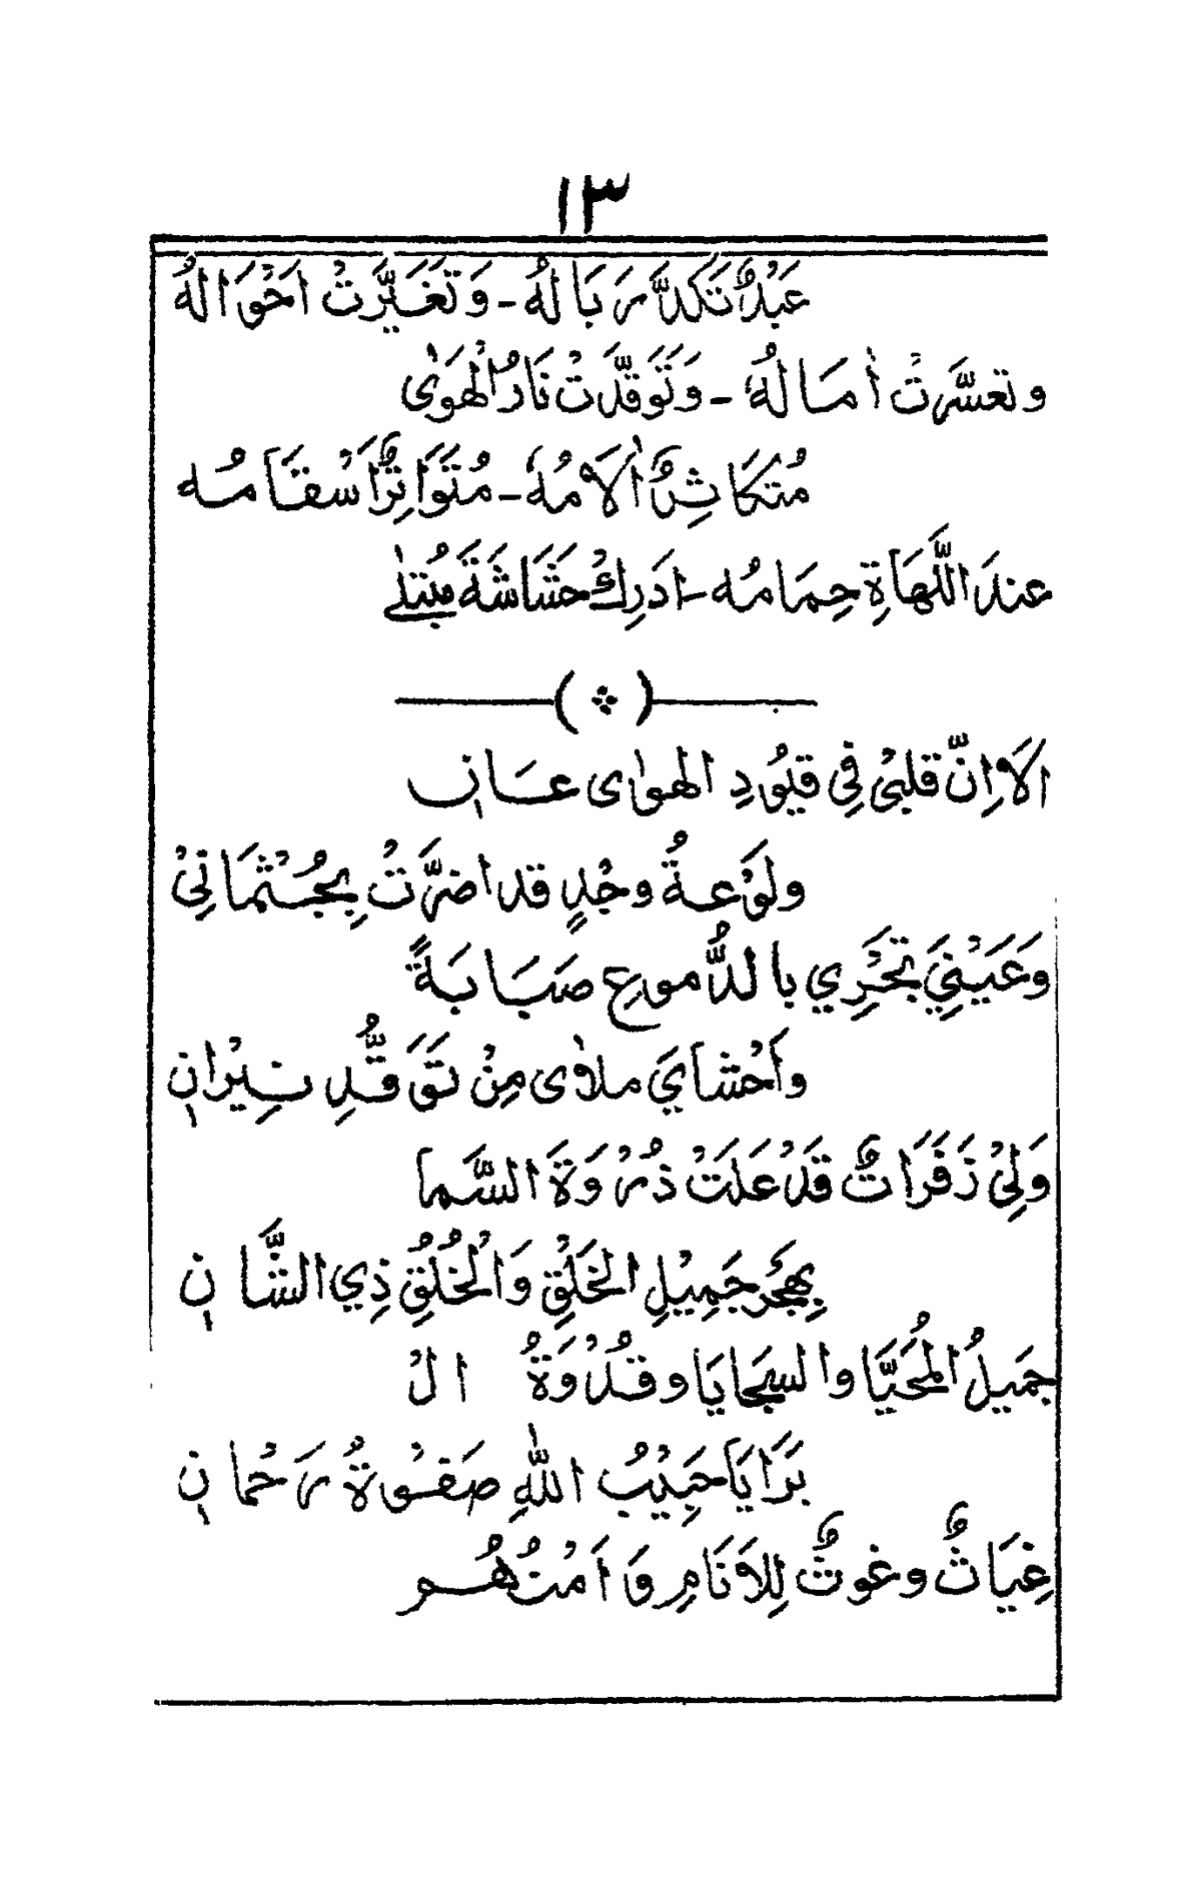 ١٣
عَبْدٌ تَكَدَّرَ بَالُهُ - وَتَغَيَّرَتْ اَحْوَالُهُ
وتعسَّرَتْ اٰمَالُهُ - وَتَوَقَّدَتْ نَارُ الْهَوَىٰ
مُتَكَاثِرٌ اٰلَامُهُ - مُتَوَاتِرٌ اَسْقَامُه
عندَ اللَّهَاةِ حِمَامُه - اَدرِكْ حَشَاشَةَ مُبتلٰے
( )
الَا اِنَّ قلبيْ فِي قيُودِ الهوٰى عَانٍ
ولَوْعةُ وجْدٍ قد اضرَّتْ بِجُثْمَانِيْ
وعَيْنِيَ تجْرِي بالدُّموعِ صَبَابَةً
واَحْشايَ ملاٰى مِنْ تَوَقُّدِ نِيْرانٍ
وَلِيْ زَفَرَاتٌ قَدْ عَلَتْ ذُرْوَةَ السَّما
بِهَجْرِ جَمِيْلِ الخَلْقِ وَالْخُلُقِ ذِي الشَّانِ
جَميلُ الْمُحَيَّا والسجَايَا وقُدْوَةُ الْ
بَرَايَا حَبِيْبُ اللّٰهِ صَفْوةُ رَحْمانٍ
غِيَاثٌ وغوثٌ لِلاَنَامِ وَاَمْنُهُم